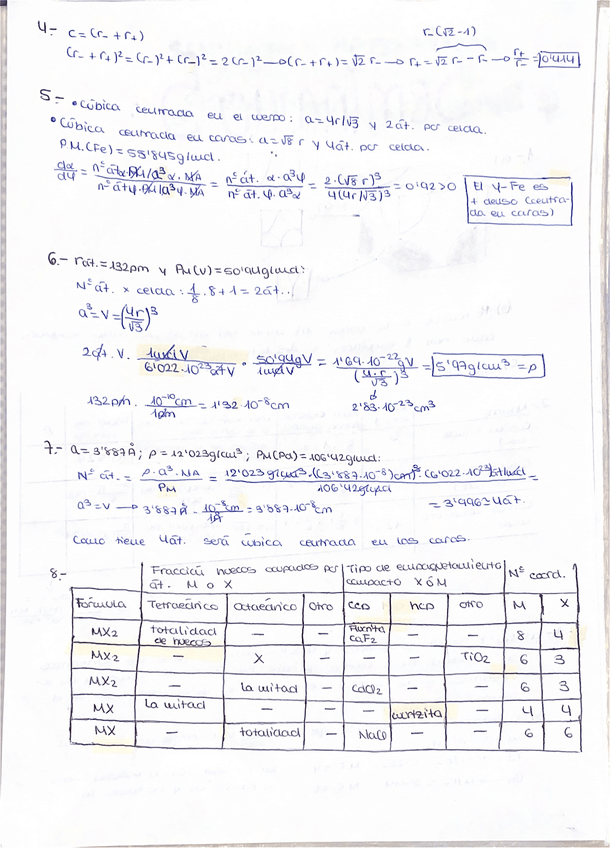 4.- c = (r₋ + r₊)
r₋(√2 - 1)
(r₋ + r₊)² = (r₋)² + (r₋)² = 2(r₋)² → (r₋ + r₊) = √2 r₋ → r₊ = √2 r₋ - r₋ → r₊/r₋ = 0'414
5.- • Cúbica centrada en el cuerpo: a = 4r/√3 y 2át. por celda.
• Cúbica centrada en caras: a = √8 r y 4át. por celda.
P.M.(Fe) = 55'845g/mol.
dα/dγ = nº át α·PM/a³α·NA / nº át γ·PM/a³γ·NA = nº át. α·a³γ / nº át. γ·a³α = 2·(√8 r)³ / 4(4r/√3)³ = 0'92 > 0
El γ-Fe es
+ denso (centra-
da en caras)
6.- rát. = 132pm y PM(V) = 50'94g/mol:
Nº át. × celda: 1/8 · 8 + 1 = 2át..
a³ = V = (4r/√3)³
2át. V. 1mol V / 6'022·10²³ át V · 50'94g V / 1mol V = 1'69·10⁻²² g V / (4·r/√3)³ = 5'97g/cm³ = ρ
132pm · 10⁻¹⁰cm / 1pm = 1'32·10⁻⁸cm
2'83·10⁻²³cm³
7.- a = 3'887Å; ρ = 12'023g/cm³; PM(Pd) = 106'42g/mol:
Nº át. = ρ·a³·NA / PM = 12'023 g/cm³·((3'887·10⁻⁸)cm)³·(6'022·10²³)át/mol / 106'42g/mol =
= 3'996 ≈ 4át.
a³ = V → 3'887Å · 10⁻⁸cm / 1Å = 3'887·10⁻⁸cm
Como tiene 4át. será cúbica centrada en las caras.
8.-
Fracción huecos ocupados por át. M o X | Tipo de empaquetamiento compacto X ó M | Nº coord.
Fórmula | Tetraédrico | Octaédrico | Otro | ccp | hcp | otro | M | X
MX2 | totalidad de huecos | — | — | Fluorita CaF2 | — | — | 8 | 4
MX2 | — | X | — | — | — | TiO2 | 6 | 3
MX2 | — | la mitad | — | CdCl2 | — | — | 6 | 3
MX | La mitad | — | — | — | wurtzita | — | 4 | 4
MX | — | totalidad | — | NaCl | — | — | 6 | 6